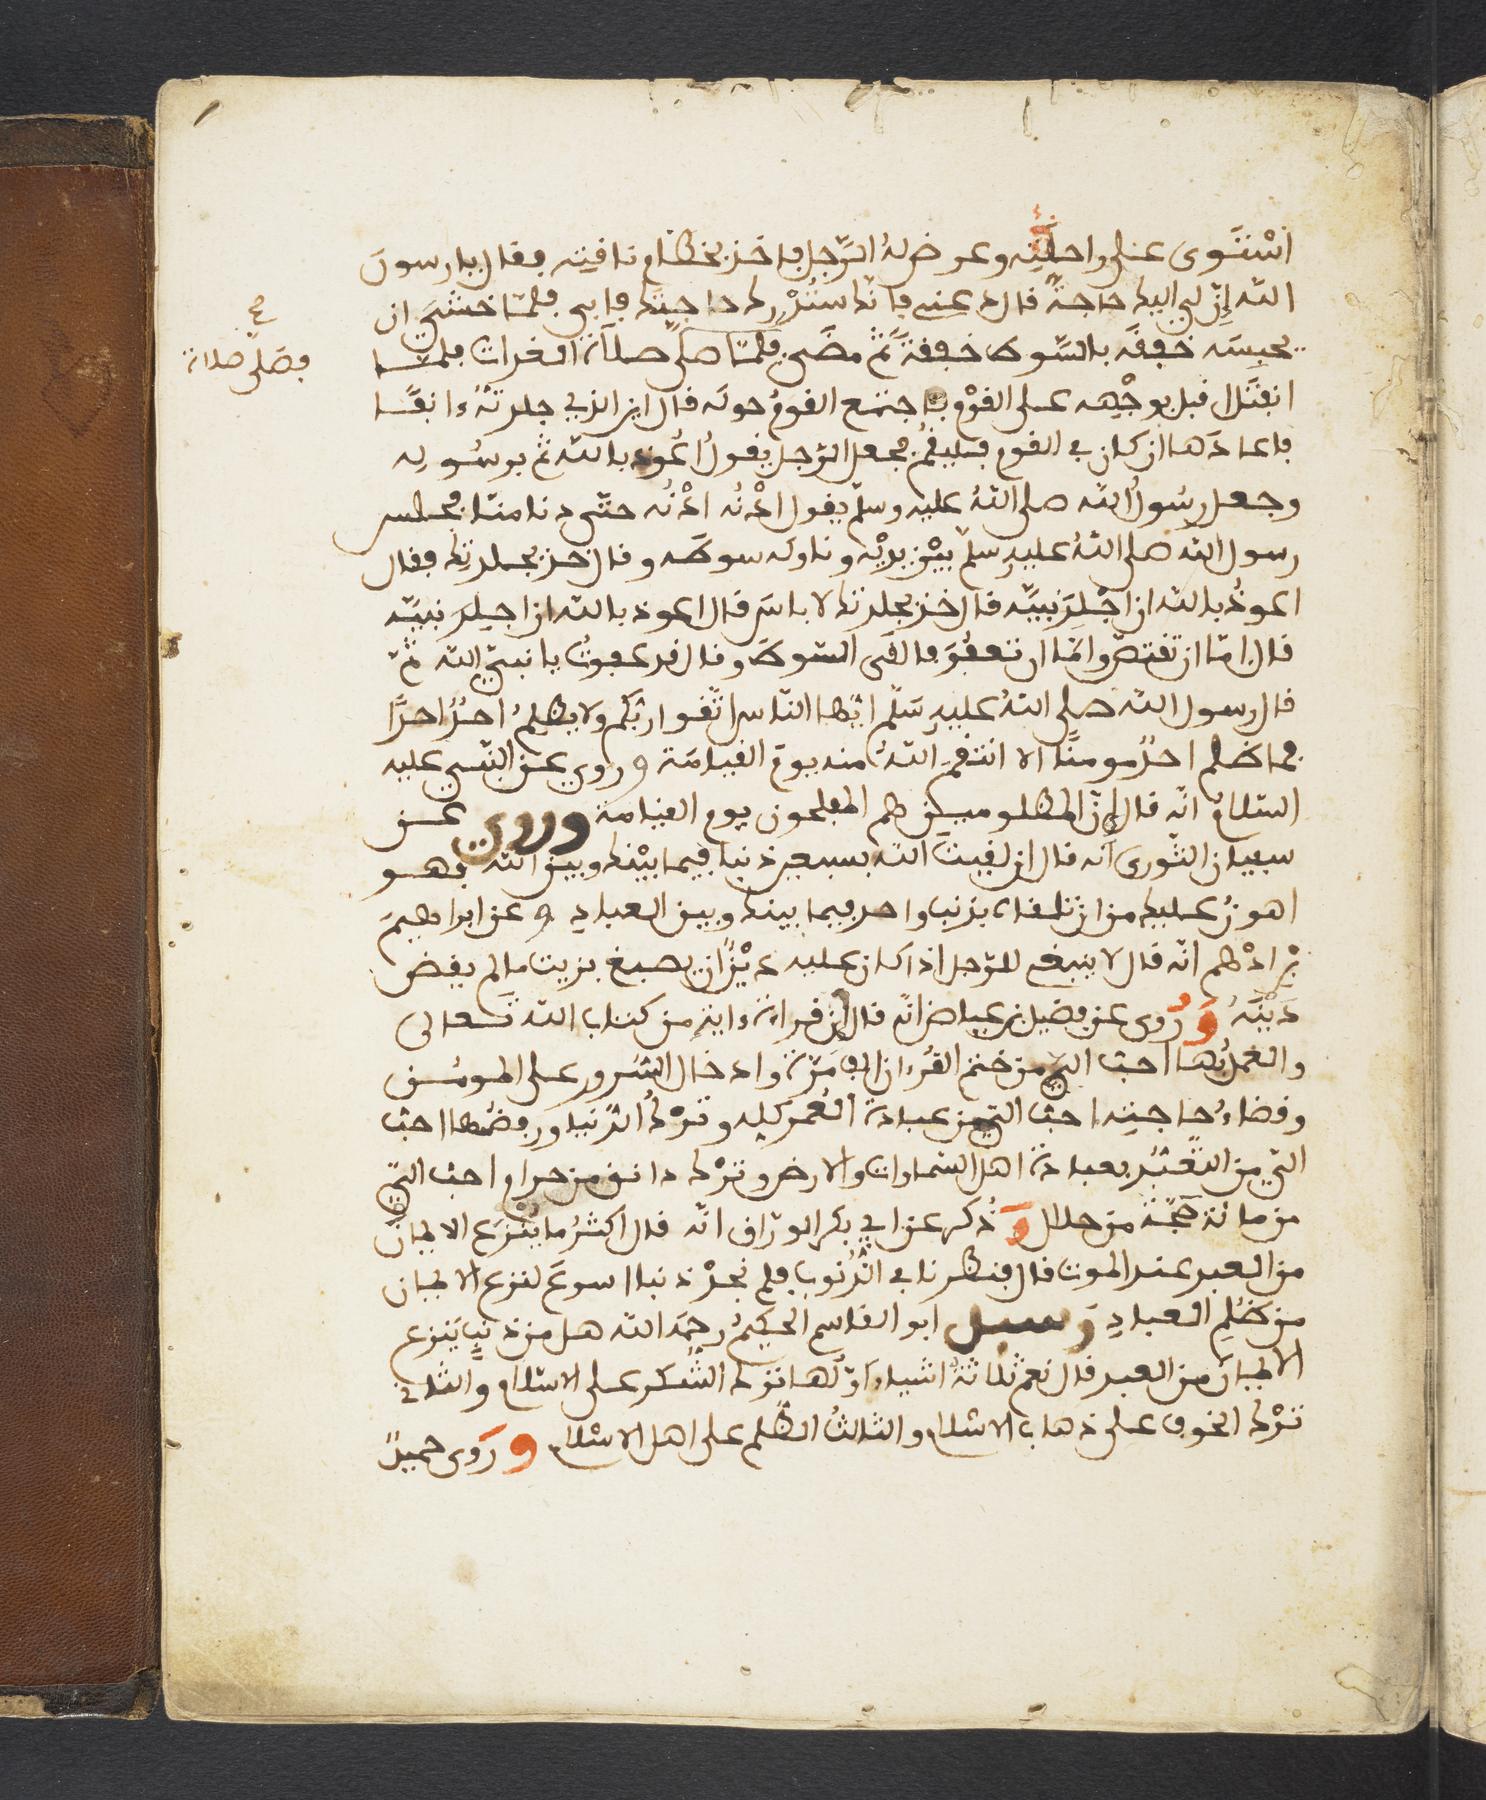 اسْتَوى على راحلته وعرض له الرّجل فاخذ بخطام ناقته فقال يا رسول
الله إنّ لي اليك حاجةً قال دعني فانك ستُدْرك حاجتك فابى فلمّا خشي ان
يحبسه خفقه بالسّوط خفقة ثمّ مضَى فلمّا صلّى صلاة الغداة فلمّا
انفتل اقبل بوجْهه على القوْم فاجتمع القومُ حوله قال اين الذي جلدته ءانفًا
فاعادَها ان كان في القوم فليقم فجعل الرّجل يقولُ اعُوذ بالله ثمّ برسُوله
وجعل رسُولُ الله صلى اللهُ عليه وسلّم يقول ادْنُه ادْنُه حتّى دنا منه فجلس
رسول الله صلى اللهُ عليه وسلّم بيْن يديْه وناوله سوطه وقال خذ بجلدتك فقال
اعوذُ بالله ان اجْلِدَ نبيّه قال خذ بجلدتك لا باس قال اعوذ بالله ان اجلد نبيّه
قال امّا ان تقتصّ وامّا ان تعفُوَ فالقى السّوط وقال قد عفوتُ يا نبيّ الله ثمّ
قال رسول الله صلى اللهُ عليه وسَلّم ايّها النّاس اتّقوا ربّكم ولا يظلمُ احدُ احدًا
فما ظلم احدٌ مومنًا الا انتقم اللهُ منه يومَ القيامَة وروي عن النّبي عليه
السّلامُ انّه قال إنّ المظلومين هم المفلحون يوم القيامة وروي عن
سفيان الثّوري انّه قال ان لقيتَ الله بسبعين ذنبا فيما بيْنك وبين الله فهو
اهونُ عليك من ان تلقاه بذنب واحد فيما بينك وبين العبادِ وعن ابراهيمَ
بْن ادْهم انّه قال لا ينبغي للرّجل اذا كان عليه ديْنٌ ان يصبغ بزيت ما لم يقض
دَيْنَهُ وَرُوى عن فضيل بن عياض انّه قال إنّ قراءة ءاية من كتاب الله تعالى
والعمل بها احبّ الي من ختم القُرءان الف مَرّة وادخال السّرور على المومن
وقضاء حاجته احبّ الي من عبادة العُمر كلّه وترْكُ الدّنيا ورفضُها احبّ
الي من التعبّد بعبادة اهل السّماوات والارض وترْك دانق من حرام احبّ الي
من مائة حَجّة من حلال وَذُكر عن ابي بكر الورّاق انّه قال اكثرُ ما يُنْزع الايمانَ
من العبد عند الموت قال فنظرنا في الذّنوب فلم نجدْ ذنبا اسرعَ لنزع الايمان
من ظُلم العبادِ وَسئل ابو القاسم الحكيمُ رحمه الله هل من ذنب ينزع
الايمانَ من العبد قال نعم ثلاثةُ اشياء اوّلُها ترك الشّكر على الاسْلام والثاني
ترْك الخوف على ذهاب الاسْلام والثالثُ الظُلم على اهل الاسْلام وروَى حميدٌ
فصَلّى صلاة